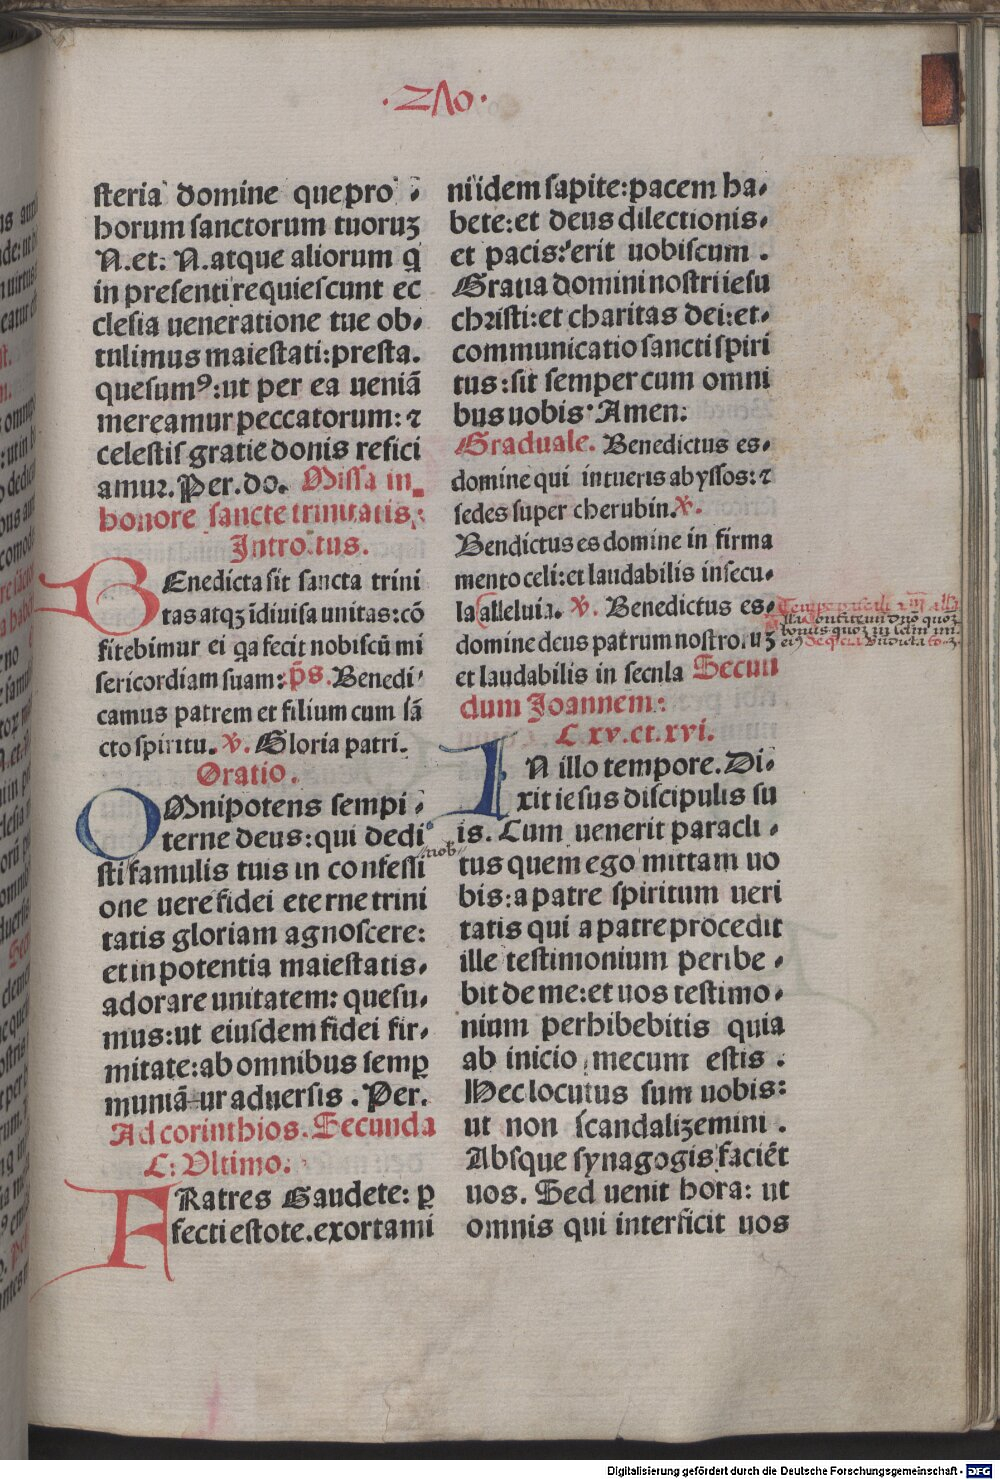 ·2Λ0·
steria domine que pro
horum sanctorum tuoruꝫ
N.et: N.atque aliorum q̄
in presenti requiescunt ec
clesia ueneratione tue ob-
tulimus maiestati:presta.
quesumꝰ:ut per ea ueniā
mereamur peccatorum:⁊
celestis gratie donis refici
amur.Per.do. Missa in
honore sancte trinitatis:
Introitus.
BEnedicta sit sancta trini
tas atqꝫ idiuisa unitas:cō
fitebimur ei qa fecit nobiscū mi
sericordiam suam:p̄s.Benedi
camus patrem et filium cum sā
cto spiritu. ℣. Gloria patri.
Oratio.
OMnipotens sempi-
terne deus:qui dedi
nob
sti famulis tuis in confessi
one uere fidei eterne trini
tatis gloriam agnoscere:
et in potentia maiestatis.
adorare unitatem: quesu-
mus:ut eiusdem fidei fir-
mitate:ab omnibus semꝑ
muniā ur aduersis . Per.
Ad corinthios.Secunda
C: Vltimo.
FRatres Gaudete: ꝑ
fecti estote.exortami
ni idem sapite:pacem ha-
bete:et deus dilectionis-
et pacis:erit uobiscum .
Gratia domini nostri iesu
christi:et charitas dei:et-
communicatio sancti spiri
tus:sit semper cum omni
bus uobis·Amen:
Graduale. Benedictus es-
domine qui intueris abyssos:⁊
sedes super cherubin.℟.
Bendictus es domine in firma
mento celi:et laudabilis in secu-
la alleluia. ℣. Benedictus es-
domine deus patrum nostro.uꝫ
et laudabilis in secnla Secun
dum Joannem:
C.xv.et.xvi.
IN illo tempore.Di-
xit iesus discipulis su
is. Cum uenerit paracli-
tus quem ego mittam uo
bis:a patre spiritum ueri
tatis qui a patre procedit
ille testimonium peribe-
bit de me:et uos testimo-
nium perhibebitis quia
ab inicio mecum estis .
Hec locutus sum uobis:
ut non scandalizemini .
Absque synagogis faciēt
uos. Sed uenit hora: ut
omnis qui interficit uos
Digitalisierung gefördert durch die Deutsche Forschungsgemeinschaft - DFG